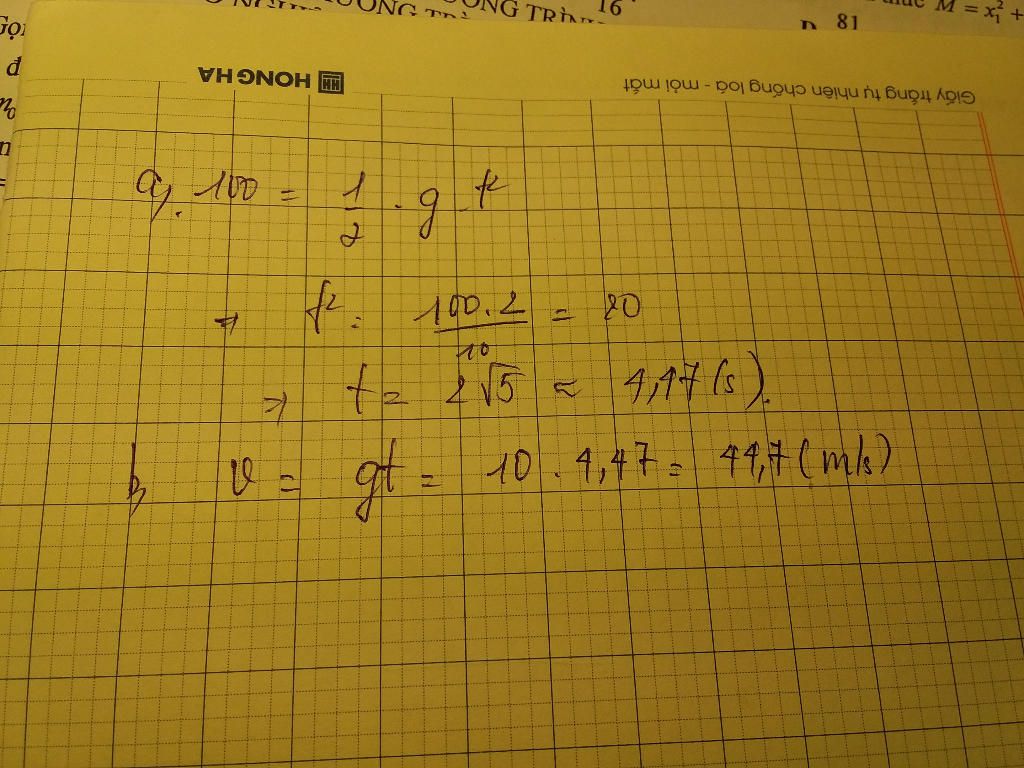 16
M = x₁² +
D. 81
HONG HA
Giấy trắng tự nhiên chống loá - mỏi mắt
a, 100 = 1/2 . g . t²
→ t² = 100.2/10 = 20
→ t = 2√5 ≈ 4,47 (s).
b, v = gt = 10 . 4,47 = 44,7 (m/s)